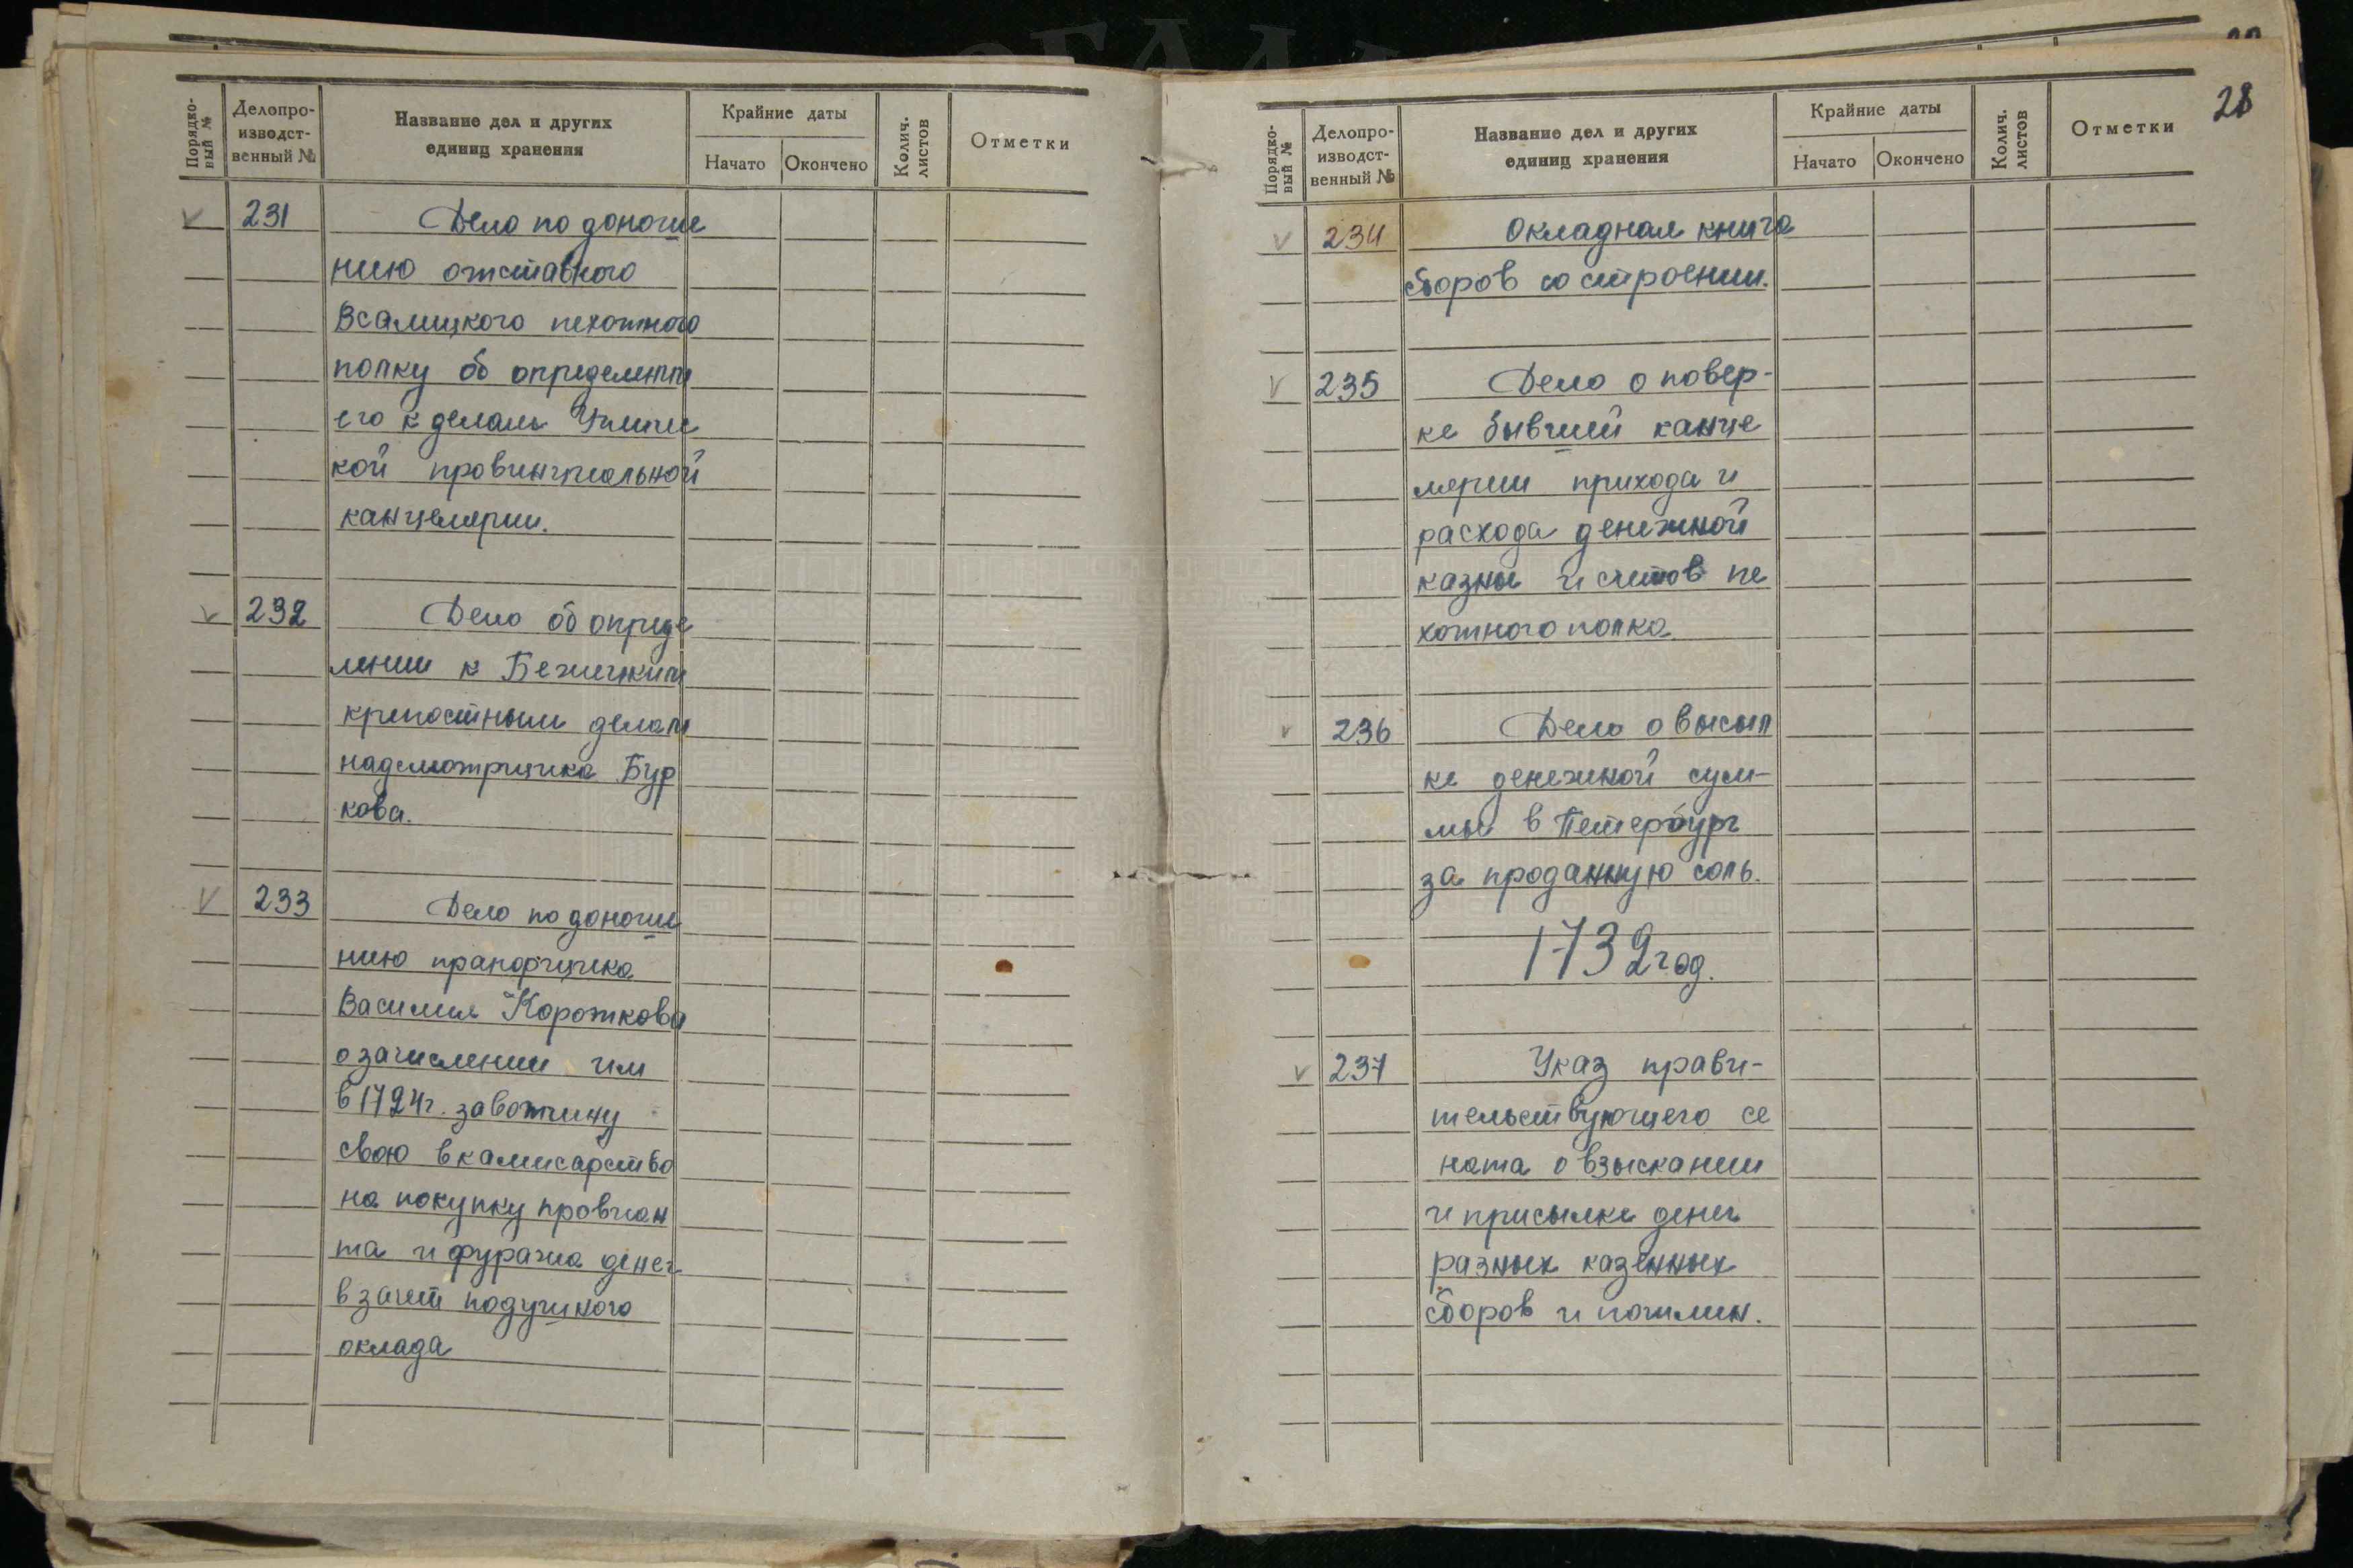 Порядко-
вый №
Делопро-
изводст-
венный №
Название дел и других
единиц хранения
Крайние даты
Начато
Окончено
Колич.
листов
Отметки
231 Дело по доноше
нию отставного
пехотного
полку об определении
его к делам Углич
кой провинциальной
канцелярии.
232 Дело об опреде
лении к Бежецким
крепостным делам
надсмотрщика Бур
кова.
233 Дело по доноше
нию прапорщика
Василия Короткова
о зачислении им
в 1724г. за вотчину
свою в камисарство
на покупку провиан
та и фуража денег
в зачет подушного
оклада
28
Порядко-
вый №
Делопро-
изводст-
венный №
Название дел и других
единиц хранения
Крайние даты
Начато
Окончено
Колич.
листов
Отметки
234 Окладная книга
сборов со строении.
235 Дело о повер-
ке бывшей канце
лярии прихода и
расхода денежной
казны и счетов пе
хотного полка
236 Дело о высыл
ке денежной сум-
мы в Петербург
за проданную соль.
1732 год.
237 Указ прави-
тельствующего се
ната о взыскании
и присылке денег
разных казенных
сборов и пошлин.